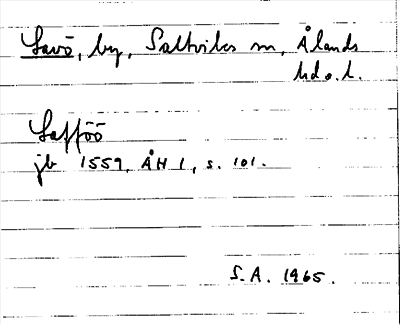 Lavö, by, Saltviks sn, Ålands
hd o. l.
Lafföö
jb 1559, ÅH 1, s. 101.
S.A. 1965.